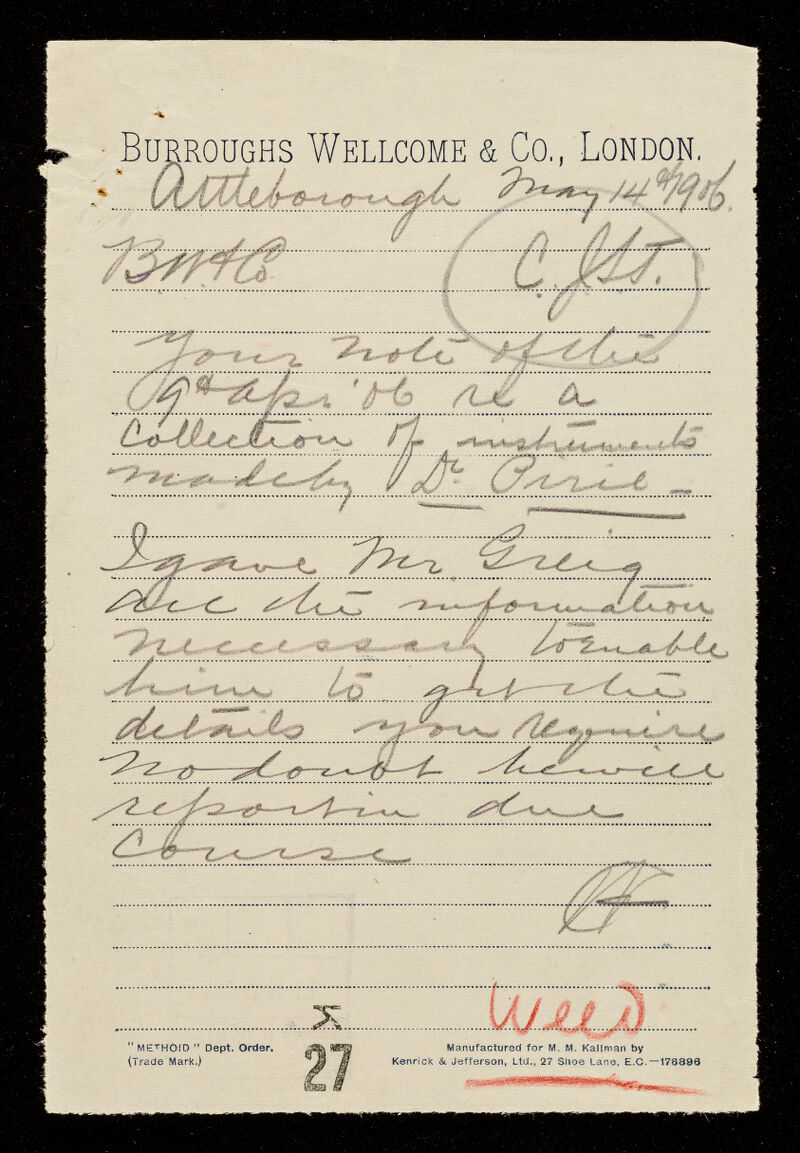 BURROUGHS WELLCOME & CO., LONDON.
Attleborough May 14th 1906.
B.W. & Co.
Your note of the
9th Apr. '06 re a
collection of instruments
made by Dr. Pirie -
I gave Mr. Greig
all the information
necessary to enable
him to get the
details you require
No doubt he will
report in due
course
Weed
K
27
"METHOID" Dept. Order.
(Trade Mark.)
Manufactured for M. M. Kallman by
Kenrick & Jefferson, Ltd., 27 Shoe Lane, E.C.—176896